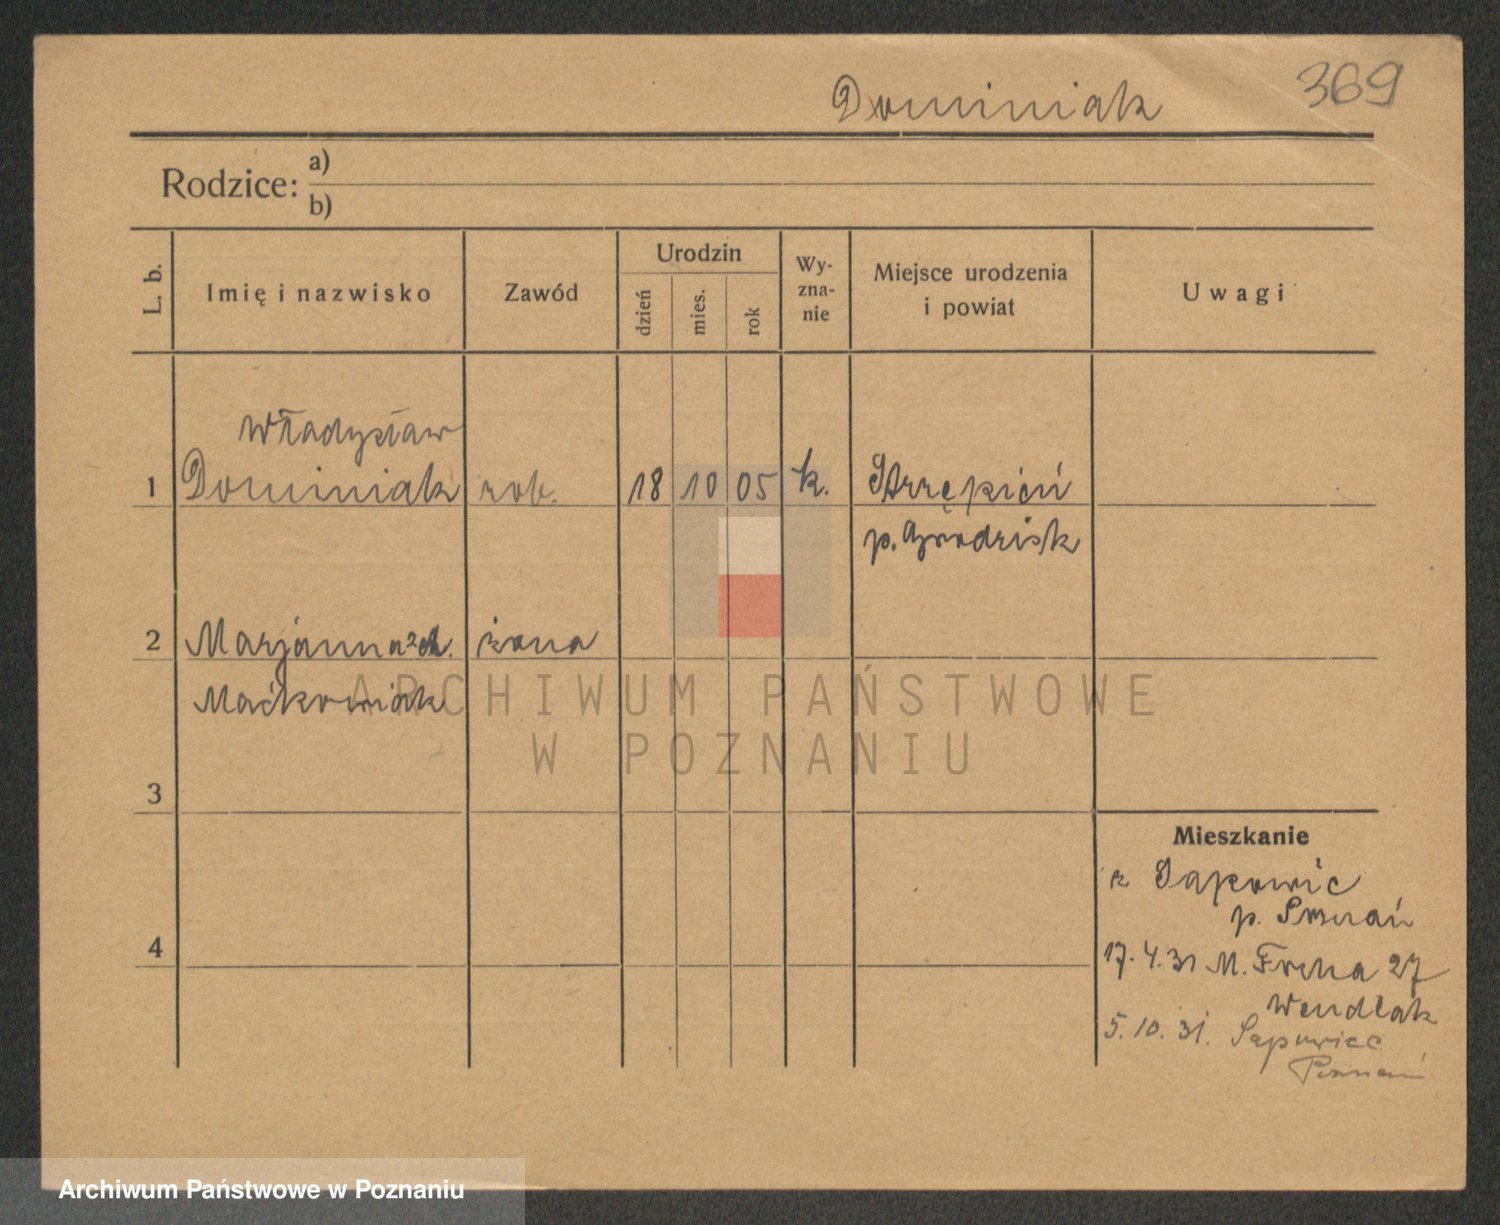 Dominiak 369
Rodzice: a)
b)
L. b. Imię i nazwisko Zawód Urodzin dzień mies. rok Wy-zna-nie Miejsce urodzenia i powiat Uwagi
Władysław
1 Dominiak rob. 18 10 05 k. Strzępiń
p. Grodzisk
2 Marjanna zd. żona
Maćkowiak
3
4
Mieszkanie
z Sapowic
p. Poznań
17.4.31 M. 27
Wendlak
5.10.31. Sapowice
Poznań
ARCHIWUM PAŃSTWOWE
W POZNANIU
Archiwum Państwowe w Poznaniu